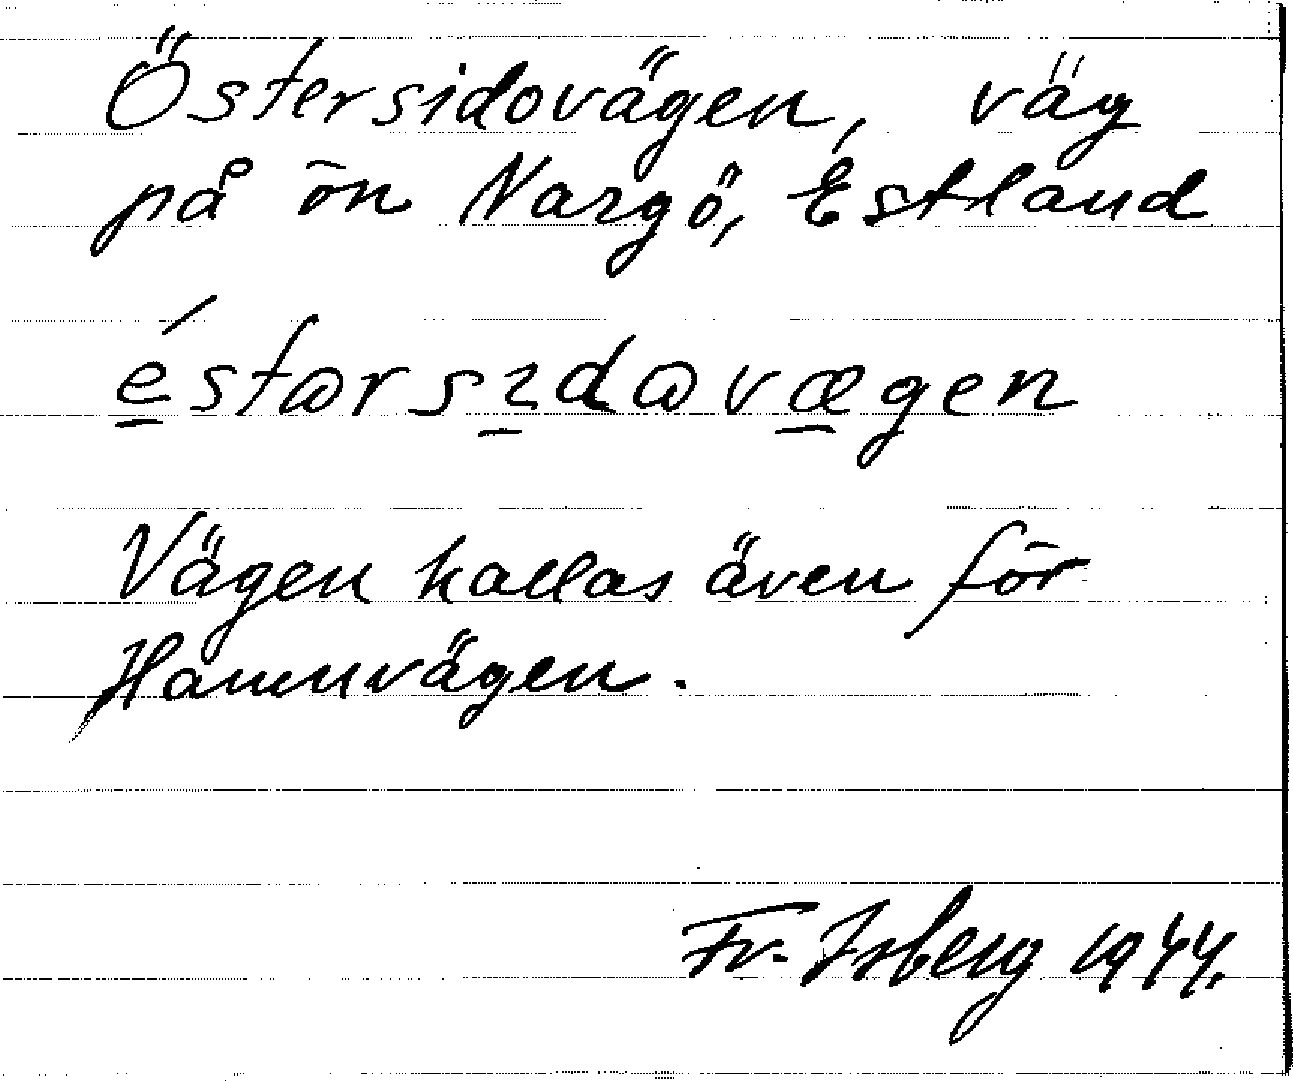 Östersidovägen, väg
på ön Nargö, Estland
é̱starsı̱davæ̱gen
Vägen kallas även för
Hamnvägen.
Fr. Isberg 1944.